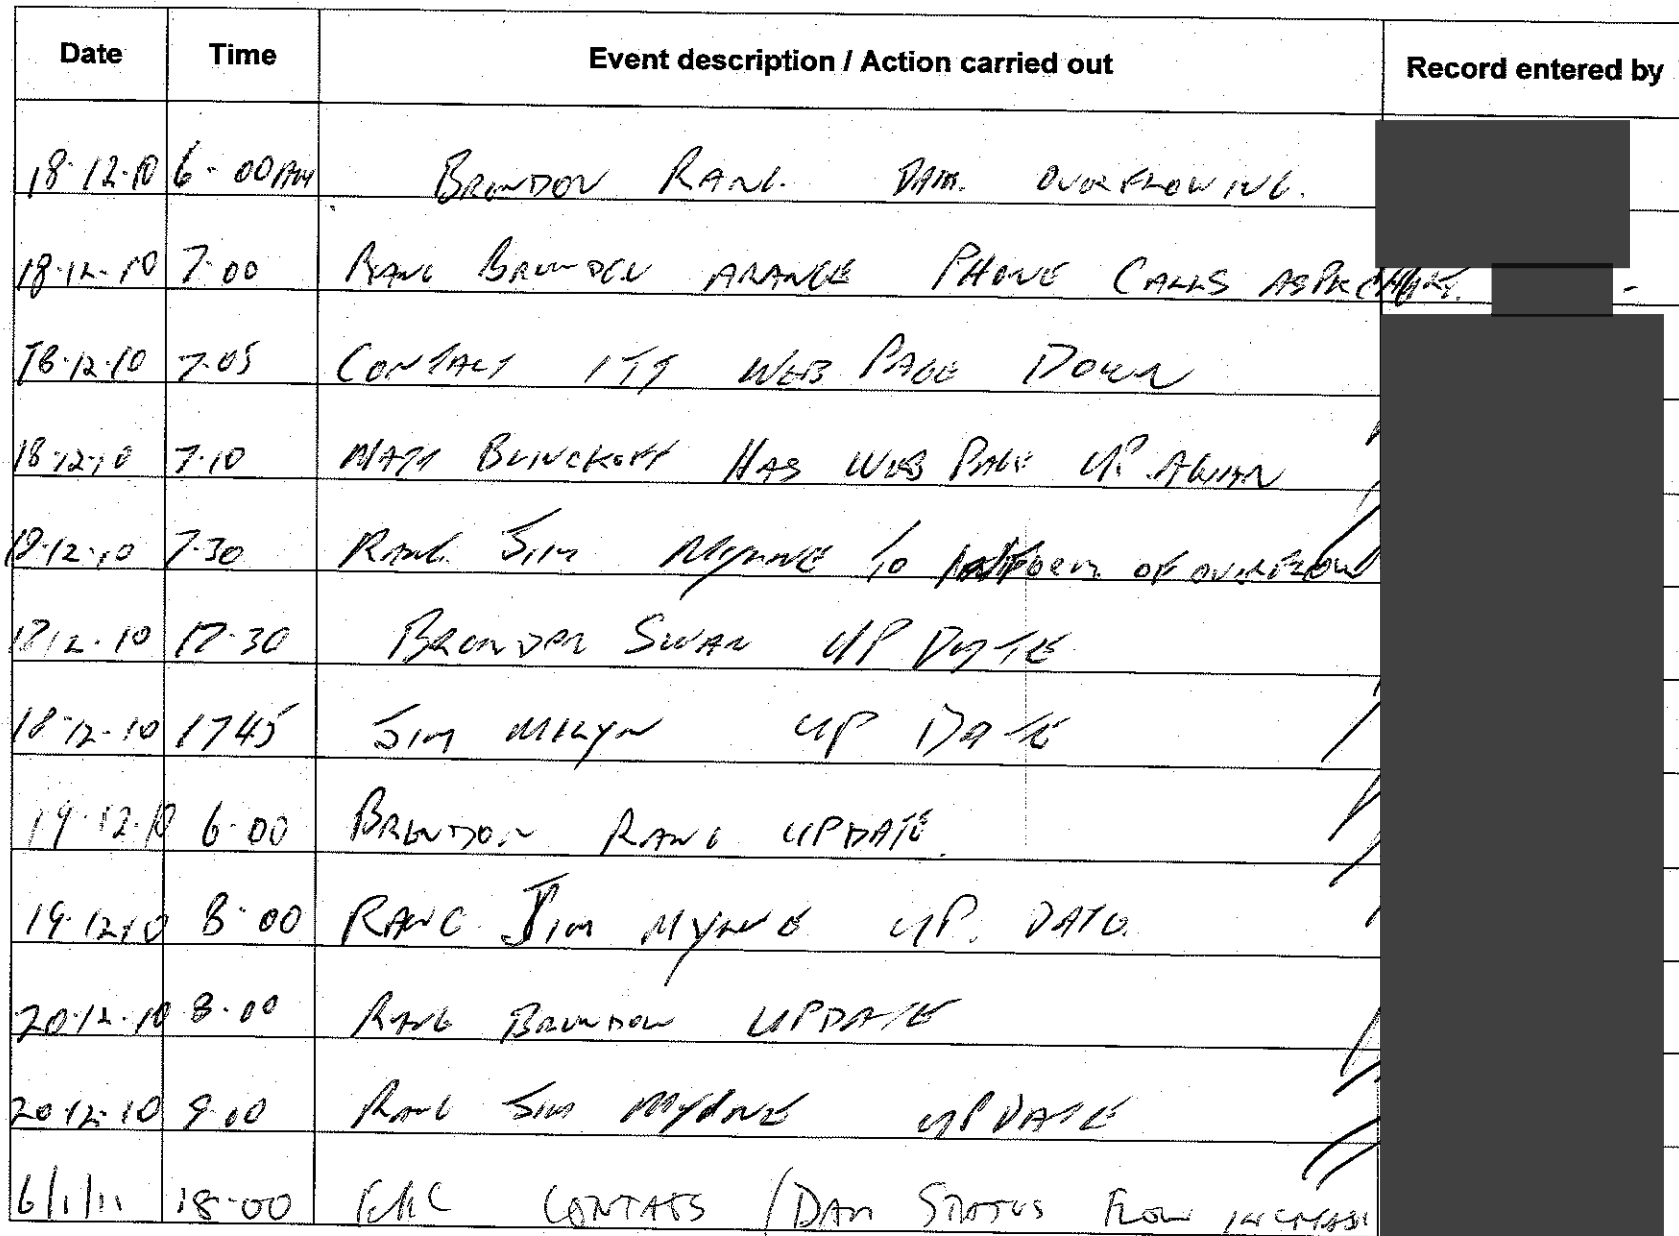 Date Time Event description / Action carried out Record entered by
18-12-10 6-00AM BRENDON RANG. DAM. OVERFLOWING.
18-12-10 7-00 RANG BRENDON ARANGE PHONE CALLS AS PER
18-12-10 7-05 CONTACT WEB PAGE DOWN
18-12-10 7-10 MATT HAS WEB PAGE UP AGAIN
18-12-10 7-30 RANG JIM TO INFORM OF OVERFLOW
18-12-10 17-30 BRENDON SWAN UP DATE
18-12-10 1745 JIM UP DATE
19-12-10 6-00 BRENDON RANG UPDATE.
19-12-10 8-00 RANG JIM UP. DATE.
20-12-10 8-00 RANG BRENDON UPDATE
20-12-10 9-00 RANG JIM UPDATE
6/1/11 18-00 / DAM STATUS FLOW